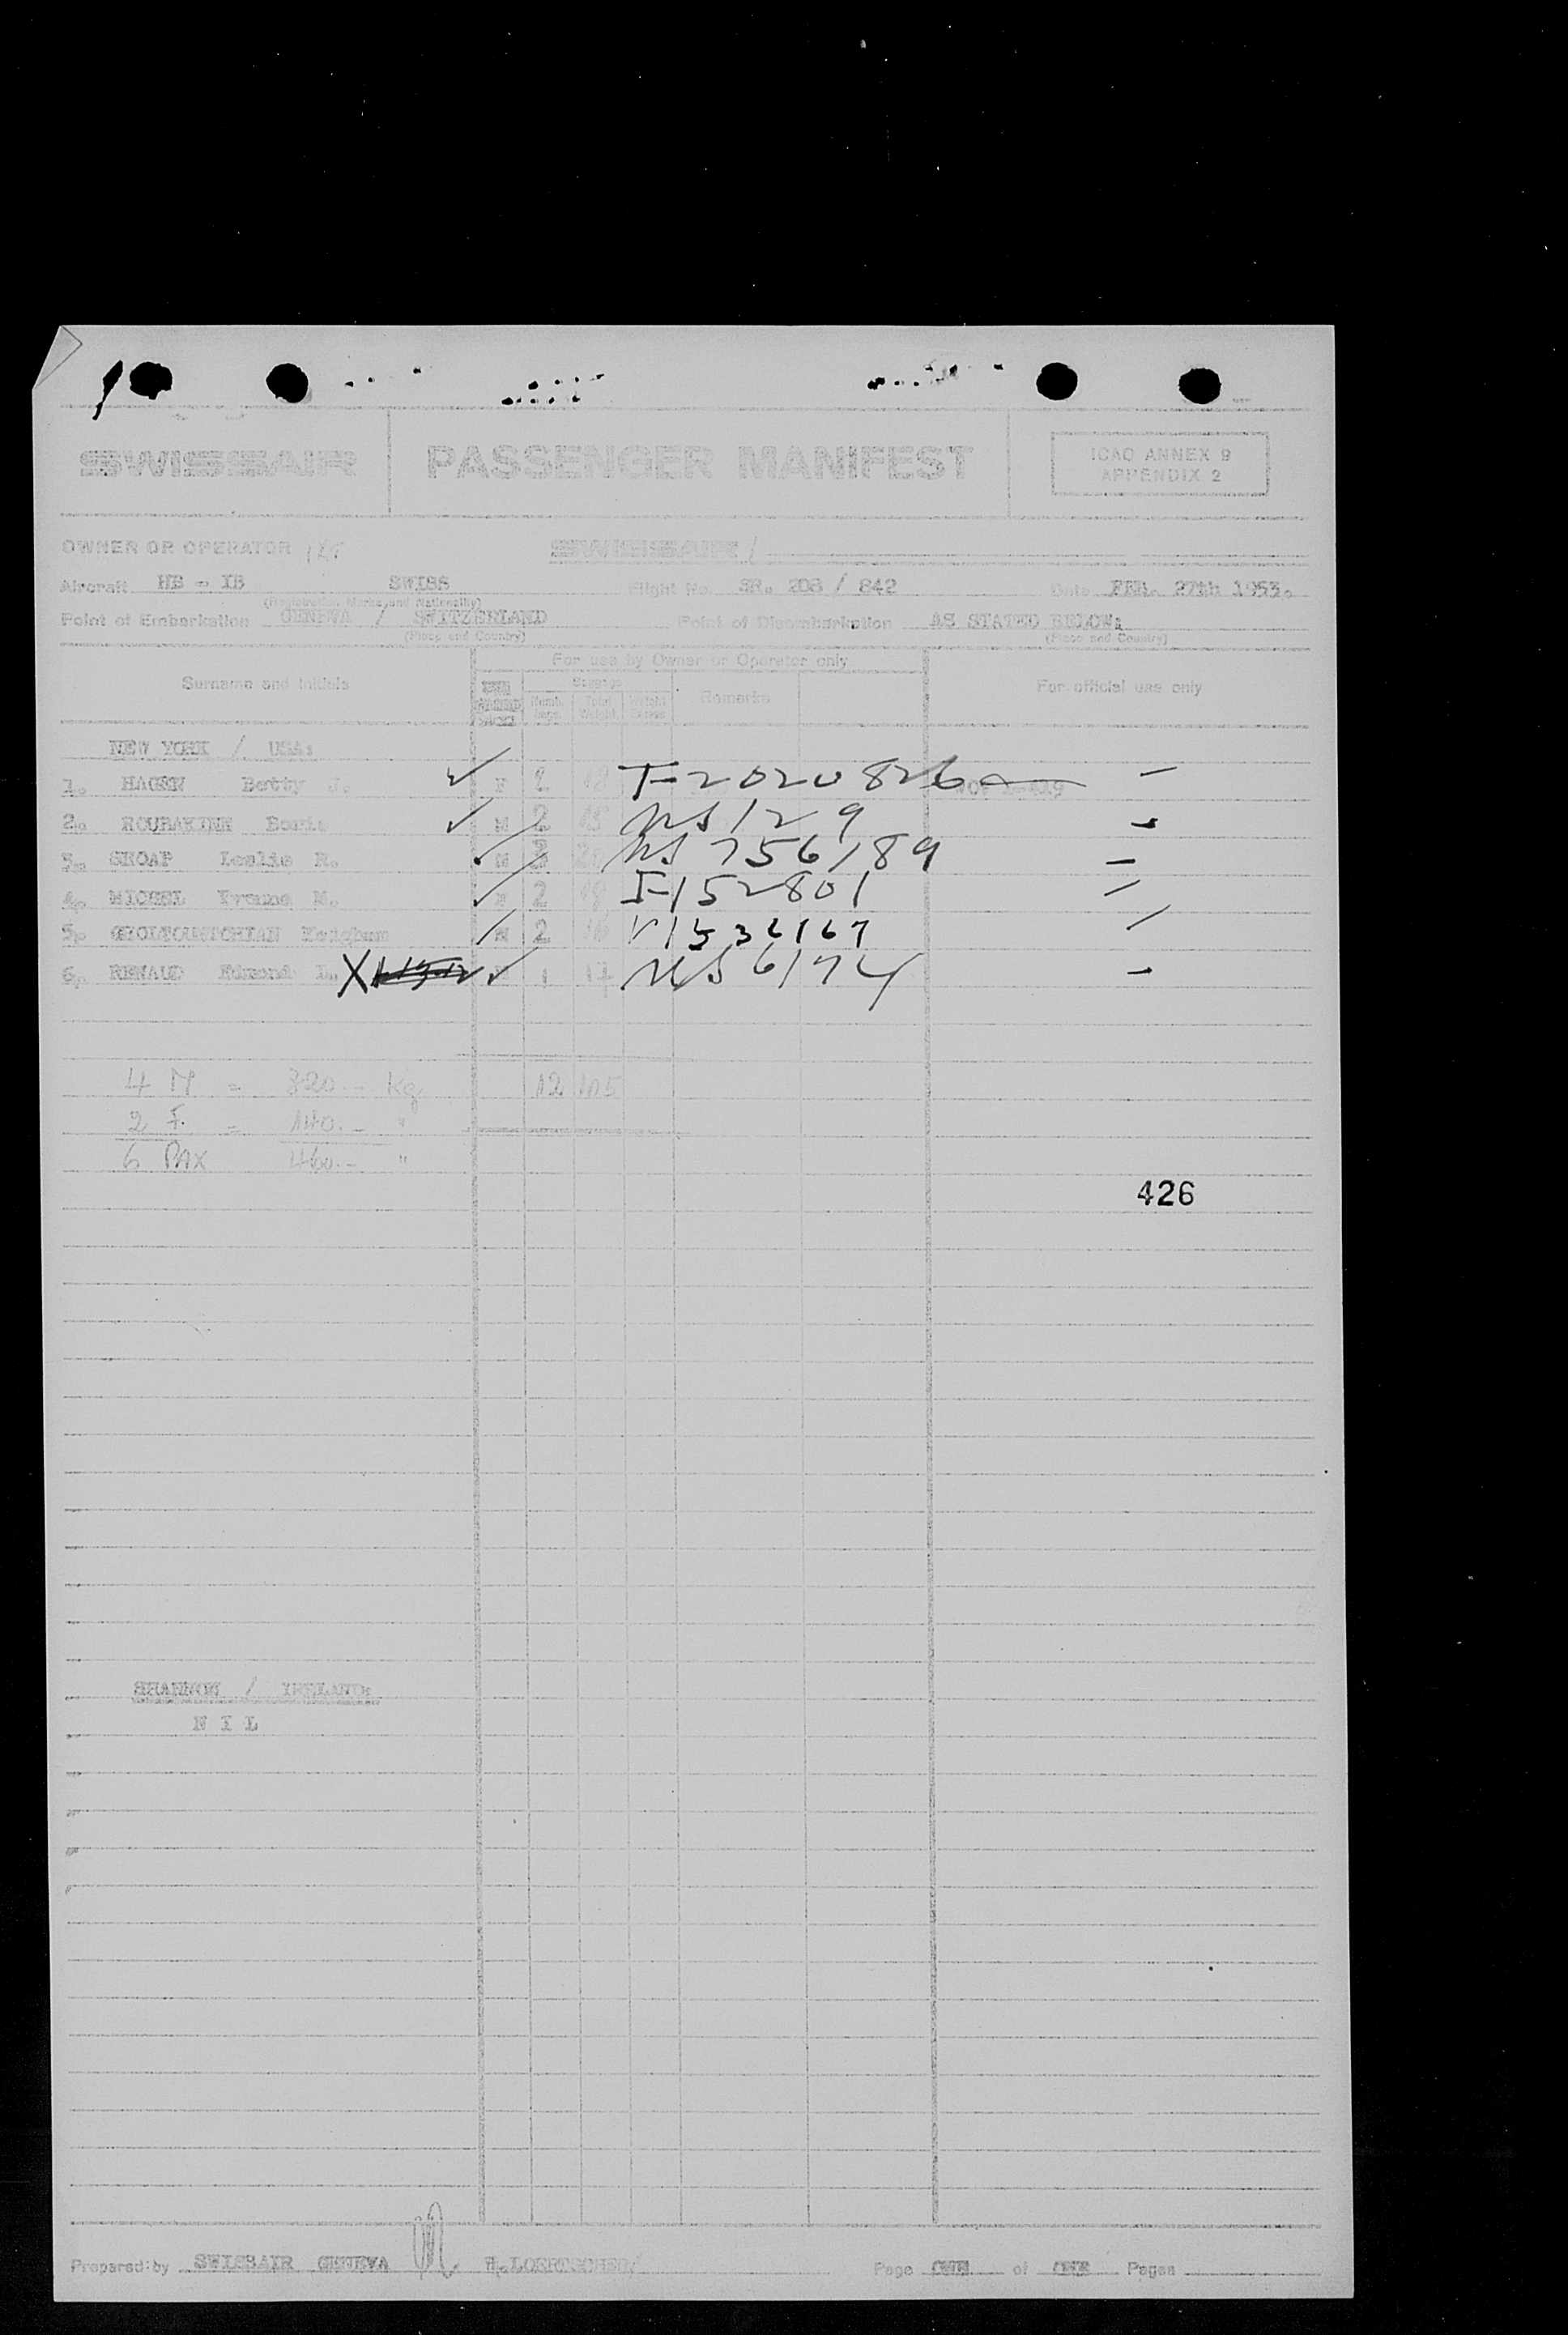 SWISSAIR PASSENGER MANIFEST ICAO ANNEX 9
APPENDIX 2
OWNER OR OPERATOR SWISSAIR /
Aircraft HB - IB SWISS Flight No. SR. 208 / 842 Date FEB. 27th 1953.
(Registration Marks and Nationality)
Point of Embarkation GENEVA / SWITZERLAND Point of Disembarkation AS STATED BELOW:
(Place and Country) (Place and Country)
For use by Owner or Operator only
Surname and Initials Remarks For official use only
Numb. Total Weight
Weight Excess
NEW YORK / USA:
1. HAGEN Betty J. F 2 F2020826
2. ROUBAKINE Boris M 2 15 US 129
3. SHOAP Leslie R. M 3 US 756189
4. MICHEL Yvonne M. F 2 F152801
5. Keighum M 2 V1536167
6. RENAUD Edmond L. X 1 17 US 6174
4 M = 320.- Kg. 12 105
2 F. = 140.- "
6 PAX 460.- "
426
SHANNON / IRELAND:
N I L
Prepared by SWISSAIR GENEVA H. LOERTSCHER/ Page ONE of ONE Pages